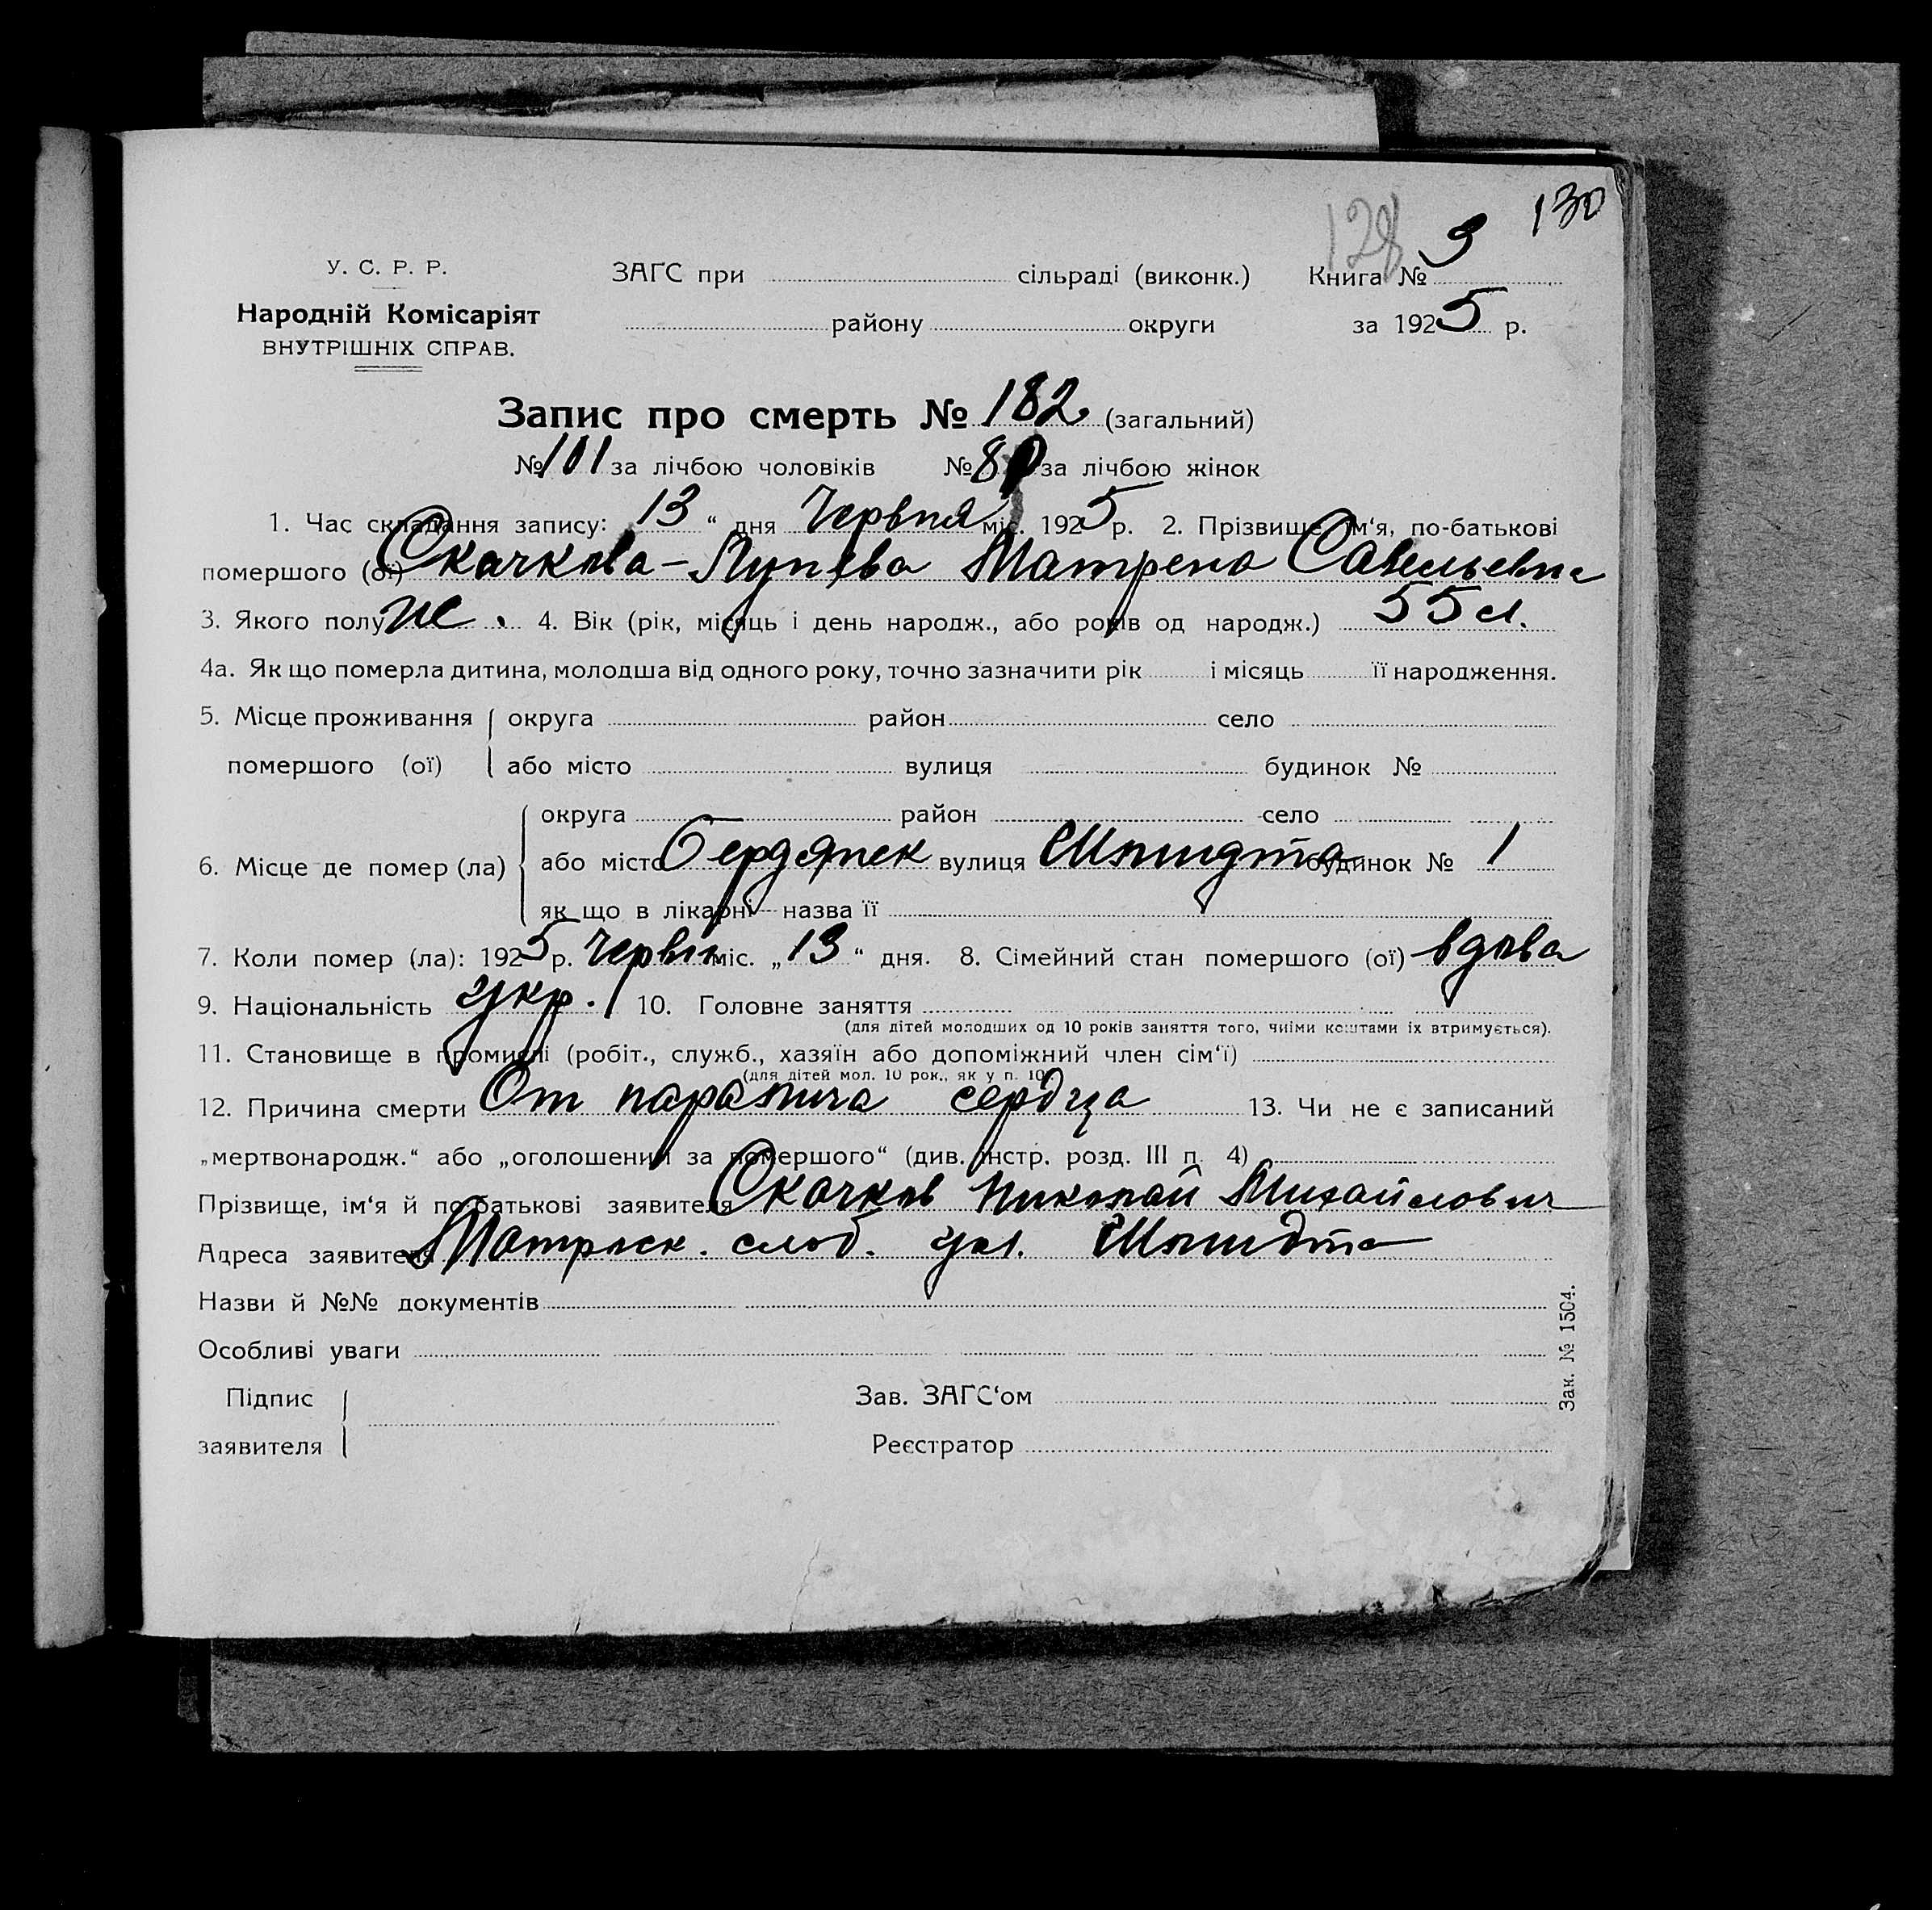 130
128
У. С. Р. Р. ЗАГС при сільраді (виконк.) Книга № 3
Народній Комісаріят району округи за 1925 р.
ВНУТРІШНІХ СПРАВ.
Запис про смерть № 182 (загальний)
№ 101 за лічбою чоловіків № 8 за лічбою жінок
1. Час складання запису: 13 “ дня Червня міс. 1925 р. 2. Прізвище, ім‘я, по-батькові
помершого (ої) Скачкова- Матрена Савельевна
3. Якого полу ж. 4. Вік (рік, місяць і день народж., або років од народж.) 55 л.
4а. Як що померла дитина, молодша від одного року, точно зазначити рік і місяць її народження.
5. Місце проживання округа район село
помершого (ої) або місто вулиця будинок №
округа район село
6. Місце де помер (ла) або місто Бердянск вулиця Шмидта будинок № 1
як що в лікарні — назва її
7. Коли помер (ла): 1925 р. Червня міс. „13“ дня. 8. Сімейний стан помершого (ої) вдова
9. Національність укр. 10. Головне заняття
(для дітей молодших од 10 років заняття того, чиїми коштами їх втримується).
11. Становище в промислі (робіт., служб., хазяїн або допоміжний член сім‘ї)
(для дітей мол. 10 рок., як у п. 10)
12. Причина смерти От паралича сердца 13. Чи не є записаний
„мертвонародж.“ або „оголошений за помершого“ (див. інстр. розд. III п. 4)
Прізвище, ім‘я й по-батькові заявителя Скачков Николай Михайлович
Адреса заявителя Матроск. слоб. ул. Шмидта
Назви й №№ документів
Особливі уваги
Підпис Зав. ЗАГС‘ом
заявителя Реєстратор
Зак. № 1504.